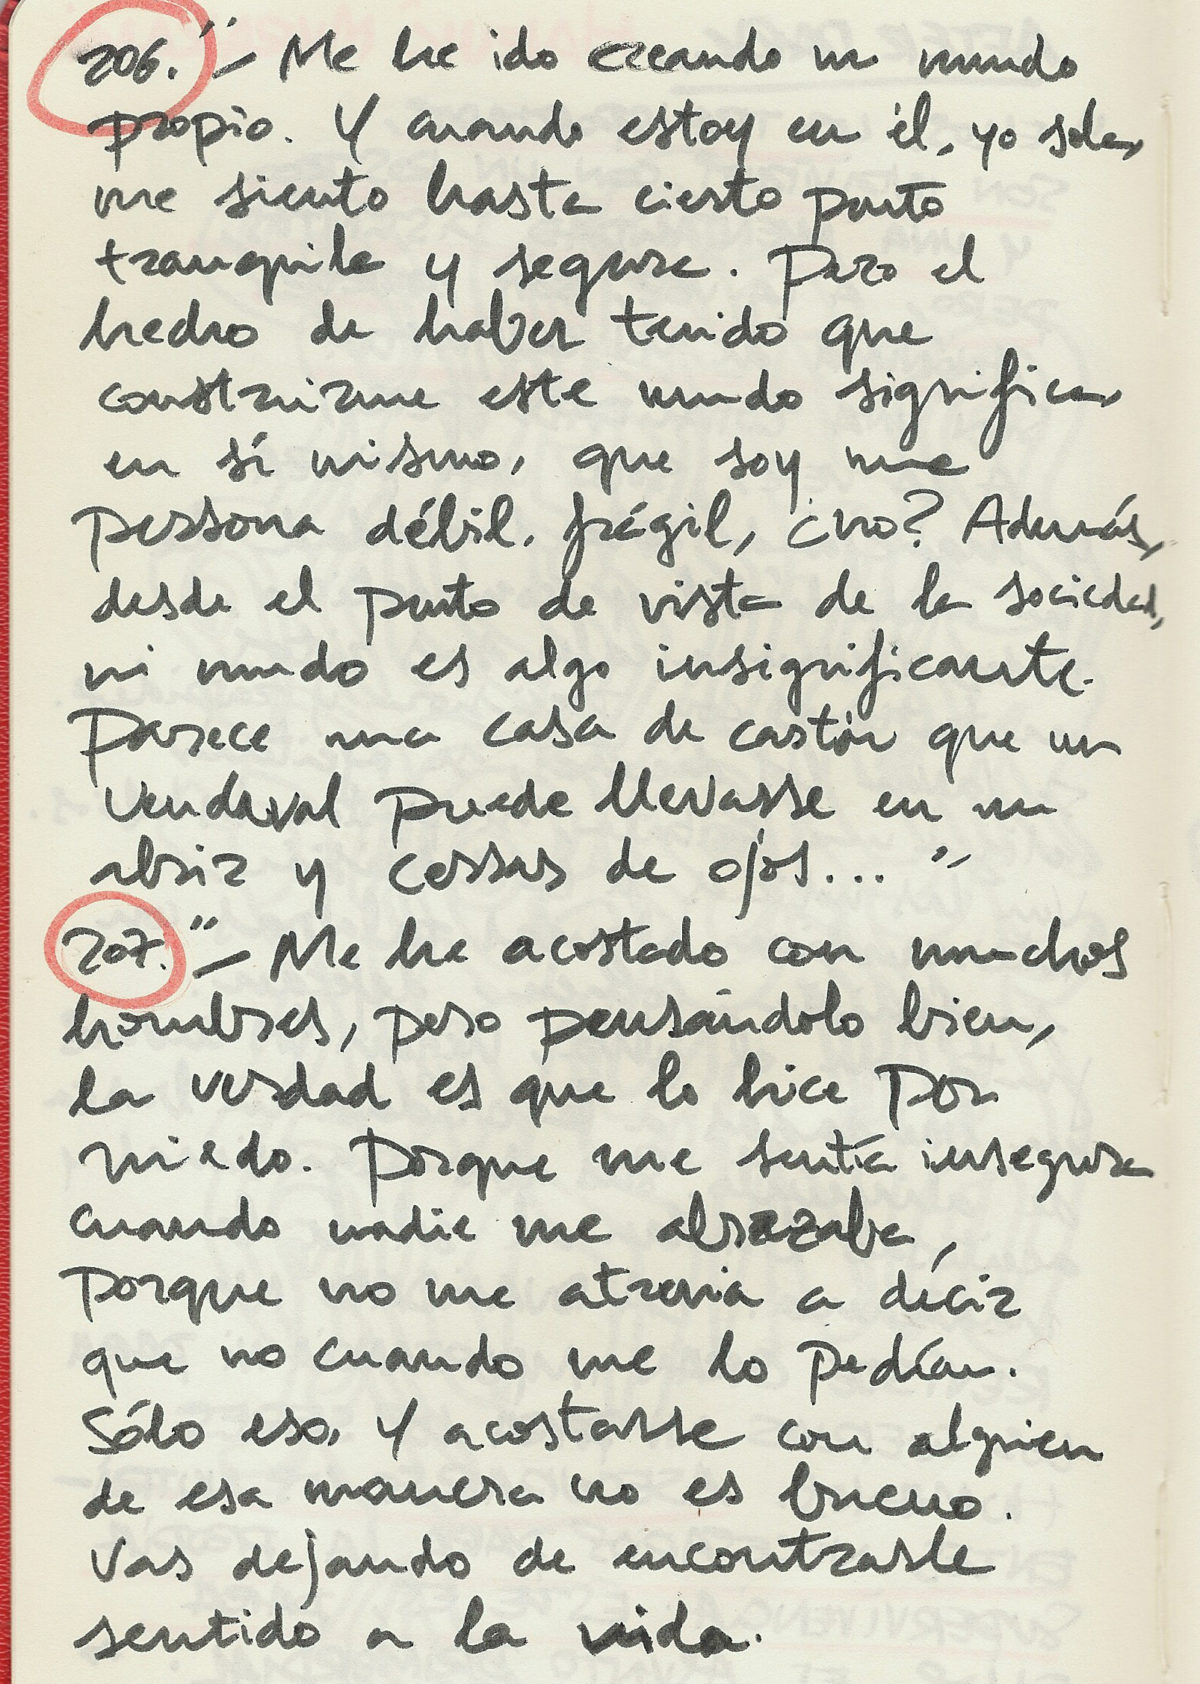 206. "— Me he ido creando un mundo
propio. Y cuando estoy en él, yo sola,
me siento hasta cierto punto
tranquila y segura. Pero el
hecho de haber tenido que
construirme este mundo significa,
en sí mismo, que soy una
persona débil, frágil, ¿no? Además,
desde el punto de vista de la sociedad,
mi mundo es algo insignificante.
Parece una casa de cartón que un
vendaval puede llevarse en un
abrir y cerrar de ojos... "
207. "— Me he acostado con muchos
hombres, pero pensándolo bien,
la verdad es que lo hice por
miedo. Porque me sentía insegura
cuando nadie me abrazaba,
porque no me atrevia a decir
que no cuando me lo pedían.
Sólo eso. Y acostarse con alguien
de esa manera no es bueno.
Vas dejando de encontrarle
sentido a la vida.